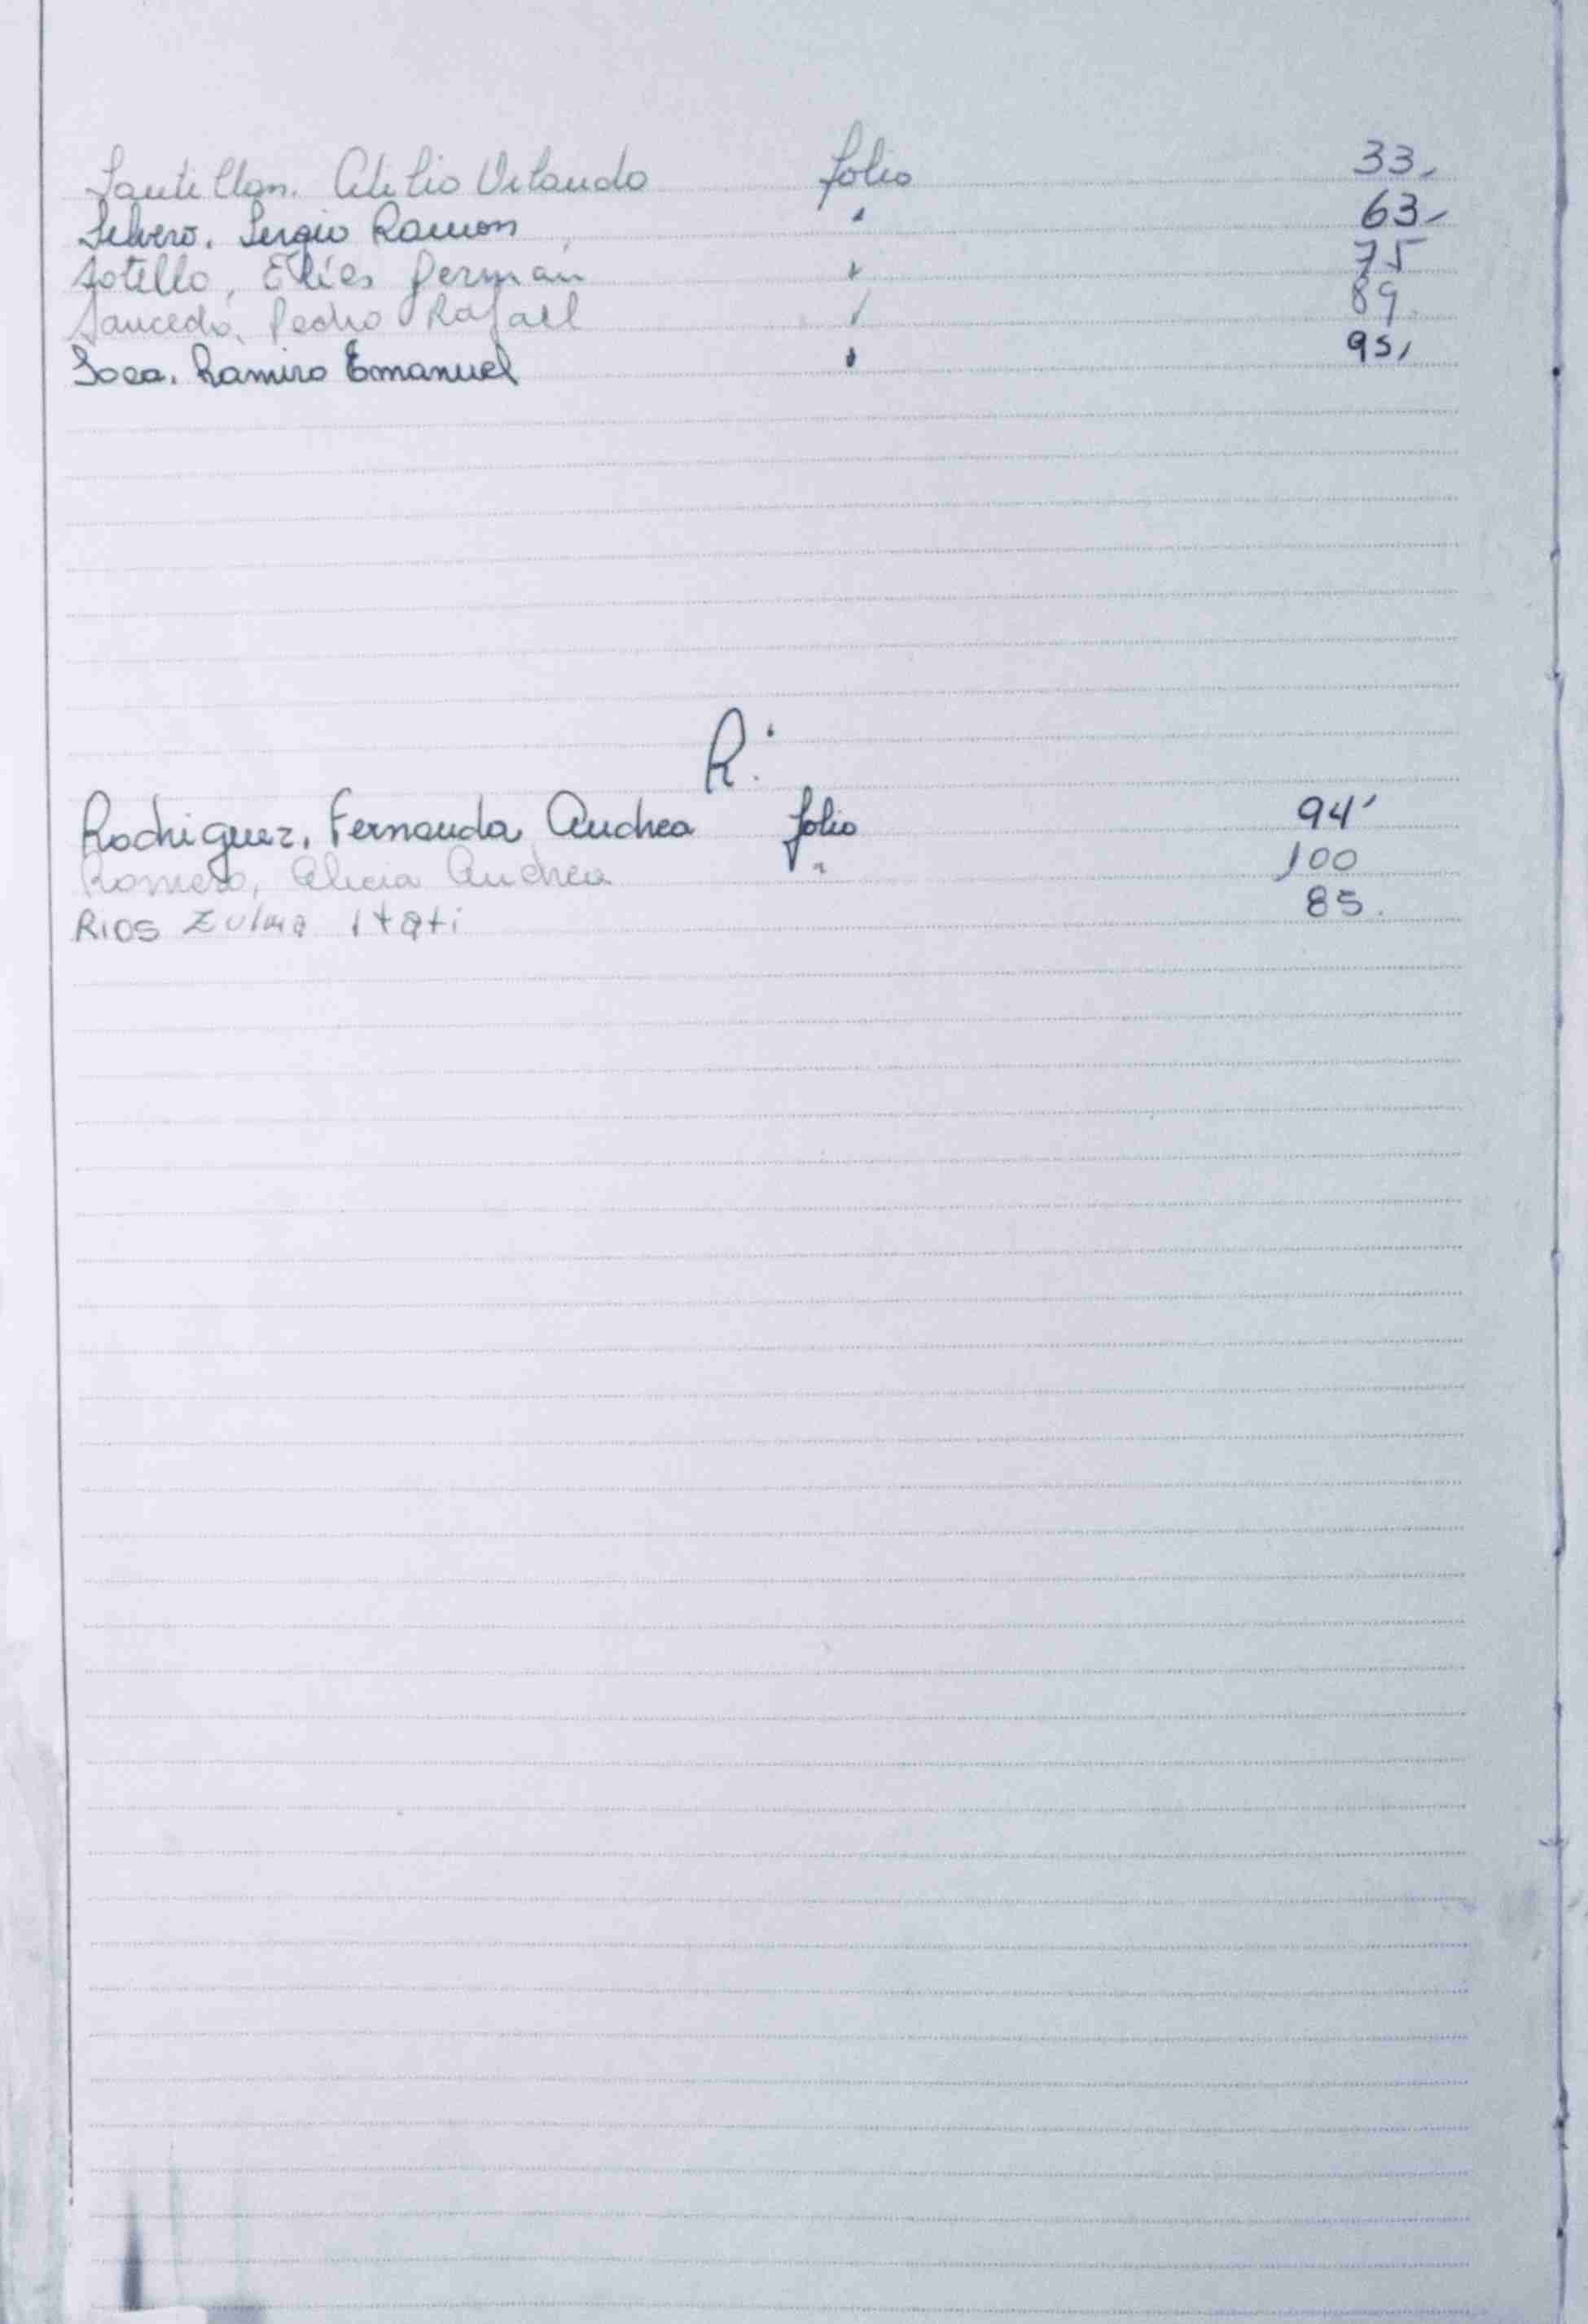 Santillan. Atilio Orlando folio 33,
Silvero. Sergio Ramon " 63-
Sotello, Elías German " 75
Saucedo, Pedro Rafael / 89.
Sosa. Ramiro Emanuel " 95,
R.
Rodriguez, Fernanda Andrea folio 94'
Romero, Alicia Andrea " 100
RIOS Zulma Itati 85.